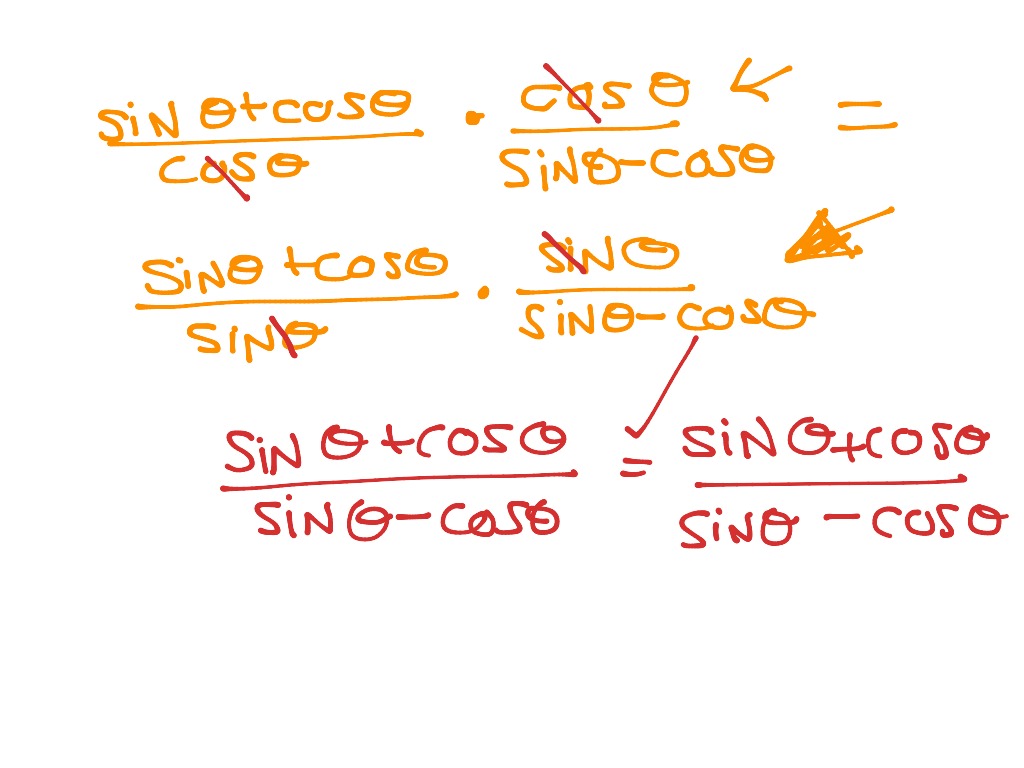 (sin θ + cos θ)/(cos θ) · (cos θ)/(sin θ - cos θ) =
(sin θ + cos θ)/(sin θ) · (sin θ)/(sin θ - cos θ)
(sin θ + cos θ)/(sin θ - cos θ) = (sin θ + cos θ)/(sin θ - cos θ)